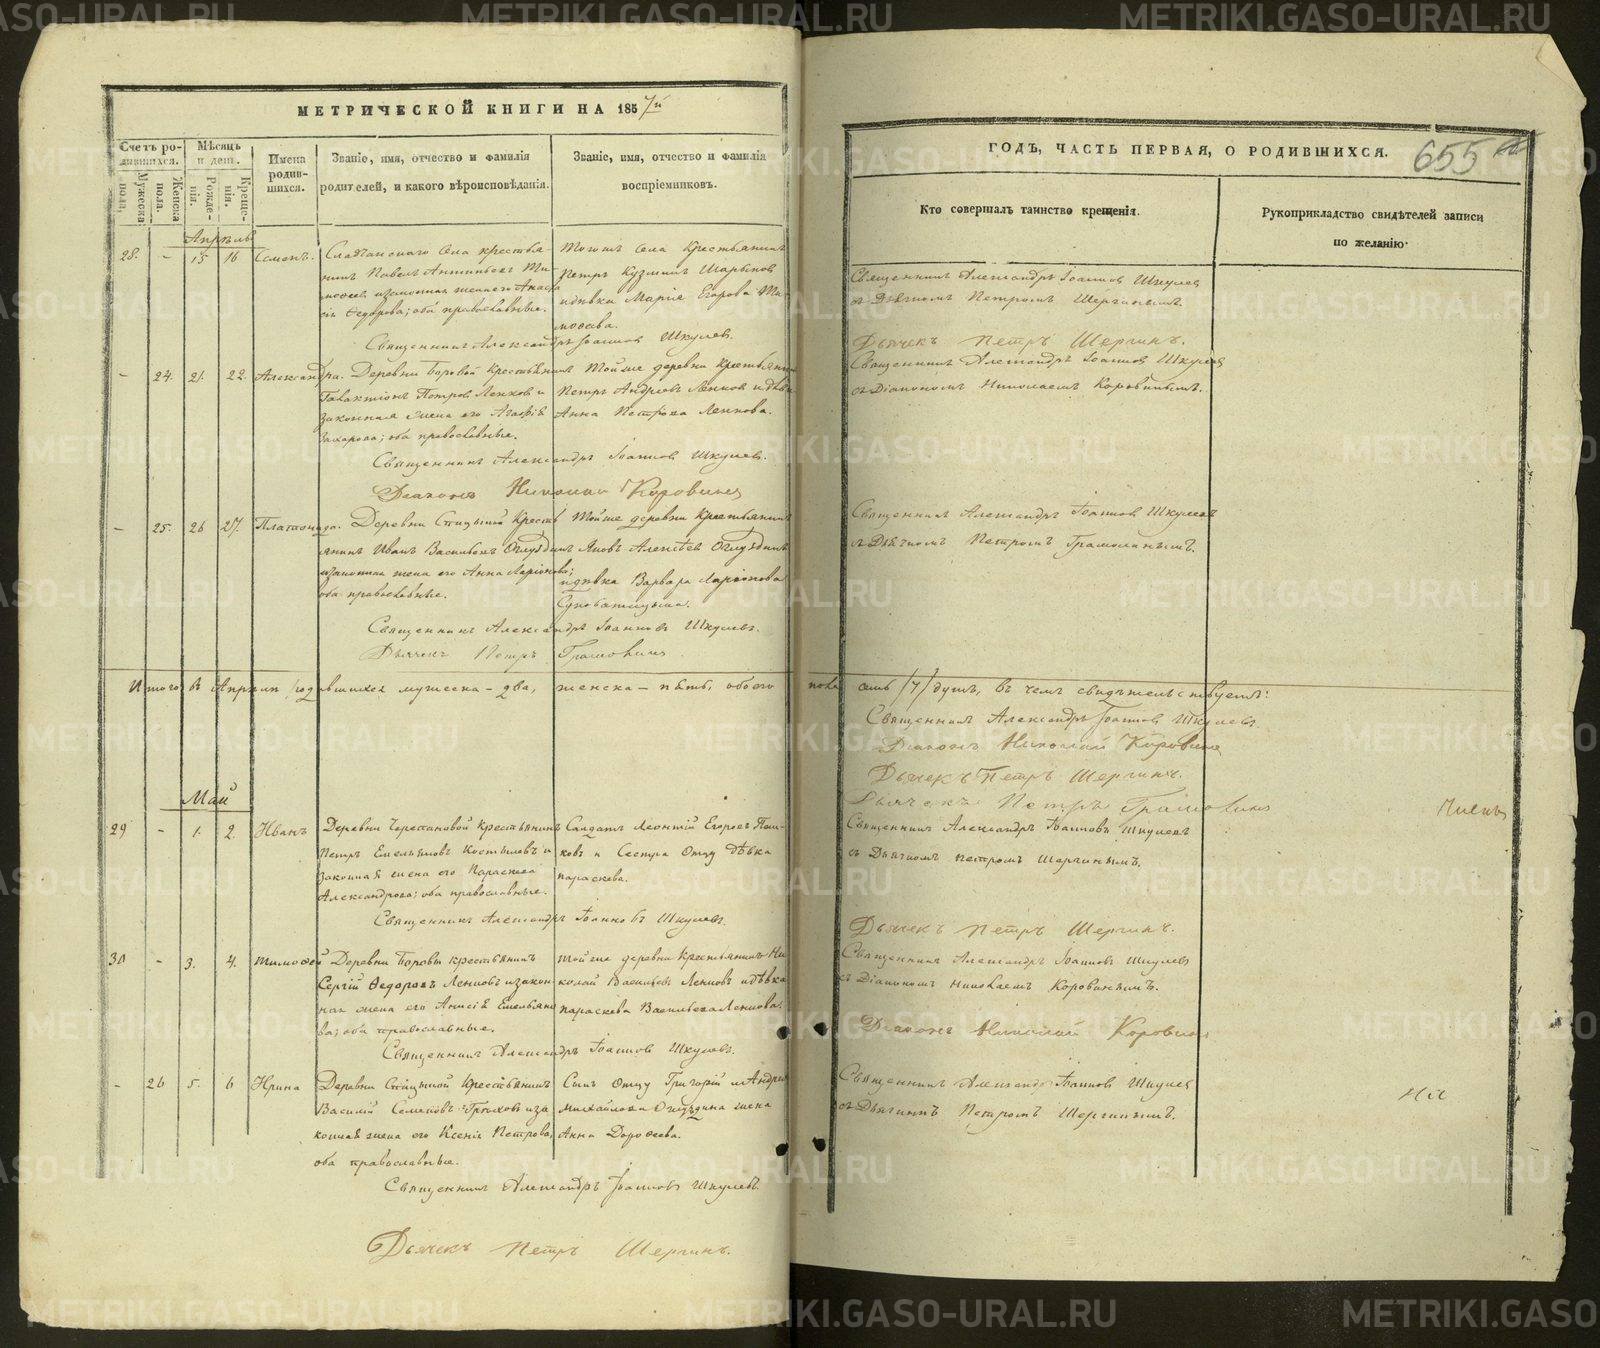 МЕТРИЧЕСКОЙ КНИГИ НА 1857й
ГОДЪ, ЧАСТЬ ПЕРВАЯ, О РОДИВШИХСЯ.
655
Счетъ ро-
дившихся.
Мужеска
пола.
Женска
пола.
Мѣсяцъ
и день.
Рожде-
нія.
Креще-
нія.
Имена
родив-
шихся.
Званіе, имя, отчество и фамилія
родителей, и какого вѣроисповѣданія.
Званіе, имя, отчество и фамилія
воспріемниковъ.
Кто совершалъ таинство крещенія.
Рукоприкладство свидѣтелей записи
по желанію.
Апрѣль
28. - 15 16 Семенъ.
Села крестья-
нинъ Павелъ Ти-
мофеевъ и законная жена его
Федорова; оба православные.
Тогоже села крестьянинъ
Петръ Кузминъ
и дѣвка Марія Егорова Ти-
мофеева.
Священникъ Александръ Іоанновъ Шкулевъ.
Священникъ Александръ Іоанновъ Шкулевъ
съ Дьячкомъ Петромъ Шергинымъ.
Дьячекъ Петръ Шергинъ.
- 24. 21. 22. Александра.
Деревни Боровой крестьянинъ
Галактіонъ Петровъ Ленковъ и
законная жена его Агафія
Захарова; оба православные.
Тойже деревни крестьянинъ
Петръ Андреевъ Ленковъ и дѣвка
Анна Петрова Ленкова.
Священникъ Александръ Іоанновъ Шкулевъ.
Діаконъ Николай Коровинъ
Священникъ Александръ Іоанновъ Шкулевъ
съ Діакономъ Николаемъ Коровинымъ.
- 25. 26 27. Платонида.
Деревни крестья-
янинъ Иванъ Васильевъ Оглуздинъ
и законная жена его Анна Ларіонова;
оба православные.
Тойже деревни крестьянинъ
Яковъ Алексѣевъ Оглуздинъ
и дѣвка Варвара Ларіонова
Священникъ Александръ Іоанновъ Шкулевъ.
Дьячекъ Петръ
Священникъ Александръ Іоанновъ Шкулевъ
съ Дьячкомъ Петромъ
Итого въ Апрѣлѣ родившихся мужеска - два, женска - пять, обоего пола семь /7/ душъ, въ чемъ свидѣтельствуемъ:
Священникъ Александръ Іоанновъ Шкулевъ.
Діаконъ Николай Коровинъ
Дьячекъ Петръ Шергинъ.
Дьячекъ Петръ
Май
29 - 1. 2. Иванъ
Деревни крестьянинъ
Петръ Емельяновъ Костылевъ и
законная жена его Параскева
Александрова; оба православные.
Солдатъ Леонтій Егоровъ
и Сестра Отцу дѣвка
Параскева.
Священникъ Александръ Іоанновъ Шкулевъ.
Священникъ Александръ Іоанновъ Шкулевъ
съ Дьячкомъ Петромъ Шергинымъ.
Дьячекъ Петръ Шергинъ.
30 - 3. 4. Тимофей
Деревни Боровы крестьянинъ
Сергій Федоровъ Ленковъ и закон-
ная жена его Анисія Емельяно-
ва; оба православные.
Тойже деревни крестьянинъ Ни-
колай Васильевъ Ленковъ и дѣвка
Параскева Васильева Ленкова.
Священникъ Александръ Іоанновъ Шкулевъ.
Священникъ Александръ Іоанновъ Шкулевъ
съ Діакономъ Николаемъ Коровинымъ.
Діаконъ Николай Коровинъ
- 26 5. 6 Ирина
Деревни крестьянинъ
Василій Семеновъ и за-
конная жена его Ксенія Петрова,
оба православные.
Сынъ Отцу Григорій и Андрея
Михайлова Оглуздина жена
Анна Дорофеева.
Священникъ Александръ Іоанновъ Шкулевъ.
Дьячекъ Петръ Шергинъ.
Священникъ Александръ Іоанновъ Шкулевъ
съ Дьячкомъ Петромъ Шергинымъ.
METRIKI.GASO-URAL.RU